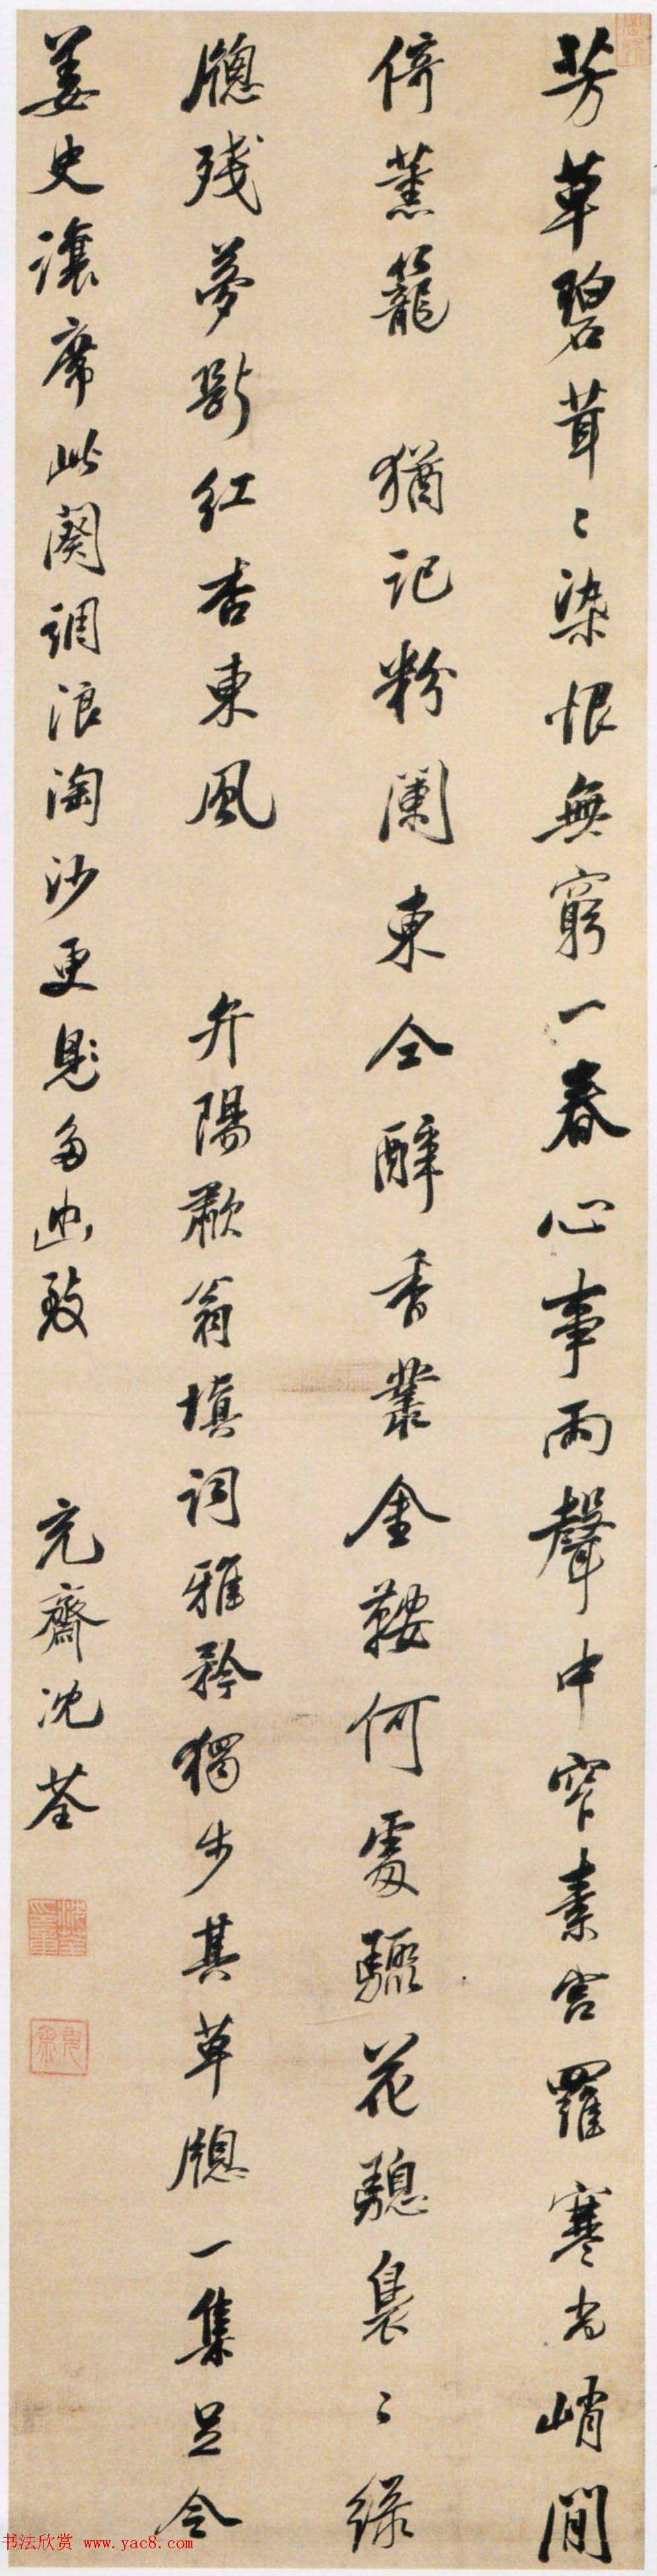 芳草碧茸〻染恨無窮一春心事雨聲中窄素宮羅寒尚峭閒
倚薰籠 猶記粉闌東仝醉香叢金鞍何處驟花驄裊〻綠
牕殘夢斷紅杏東風 弁陽歗翁填詞雅矜獨步其草牕一集足令
姜史讓席此闋調浪淘沙更多幽致 充齋沈荃
书法欣赏 www.yac8.com